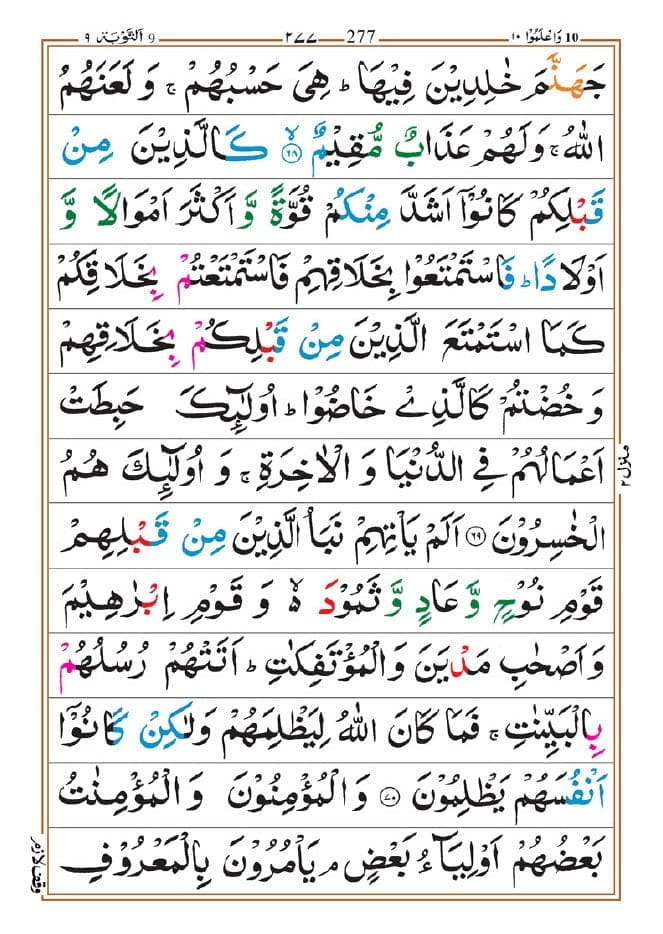 10 وَاعْلَمُوْٓا ١٠ 277 ٢٧٧ 9 اَلتَّوْبَة ٩
جَهَنَّمَ خٰلِدِيْنَ فِيْهَا ؕ هِىَ حَسْبُهُمْ ۚ وَ لَعَنَهُمُ
اللّٰهُ ۚ وَلَهُمْ عَذَابٌ مُّقِيْمٌ ۙ ﴿٦٨﴾ كَالَّذِيْنَ مِنْ
قَبْلِكُمْ كَانُوْٓا اَشَدَّ مِنْكُمْ قُوَّةً وَّ اَكْثَرَ اَمْوَالًا وَّ
اَوْلَادًا ؕ فَاسْتَمْتَعُوْا بِخَلَاقِهِمْ فَاسْتَمْتَعْتُمْ بِخَلَاقِكُمْ
كَمَا اسْتَمْتَعَ الَّذِيْنَ مِنْ قَبْلِكُمْ بِخَلَاقِهِمْ
وَ خُضْتُمْ كَالَّذِىْ خَاضُوْا ؕ اُولٰٓئِكَ حَبِطَتْ
اَعْمَالُهُمْ فِى الدُّنْيَا وَ الْاٰخِرَةِ ۚ وَ اُولٰٓئِكَ هُمُ
الْخٰسِرُوْنَ ﴿٦٩﴾ اَلَمْ يَاْتِهِمْ نَبَاُ الَّذِيْنَ مِنْ قَبْلِهِمْ
قَوْمِ نُوْحٍ وَّ عَادٍ وَّ ثَمُوْدَ ۙ۬ وَ قَوْمِ اِبْرٰهِيْمَ
وَ اَصْحٰبِ مَدْيَنَ وَالْمُؤْتَفِكٰتِ ؕ اَتَتْهُمْ رُسُلُهُمْ
بِالْبَيِّنٰتِ ۚ فَمَا كَانَ اللّٰهُ لِيَظْلِمَهُمْ وَلٰكِنْ كَانُوْٓا
اَنْفُسَهُمْ يَظْلِمُوْنَ ﴿٧٠﴾ وَالْمُؤْمِنُوْنَ وَالْمُؤْمِنٰتُ
بَعْضُهُمْ اَوْلِيَآءُ بَعْضٍ ۘ يَاْمُرُوْنَ بِالْمَعْرُوْفِ
منزل ٢
وقف لازم